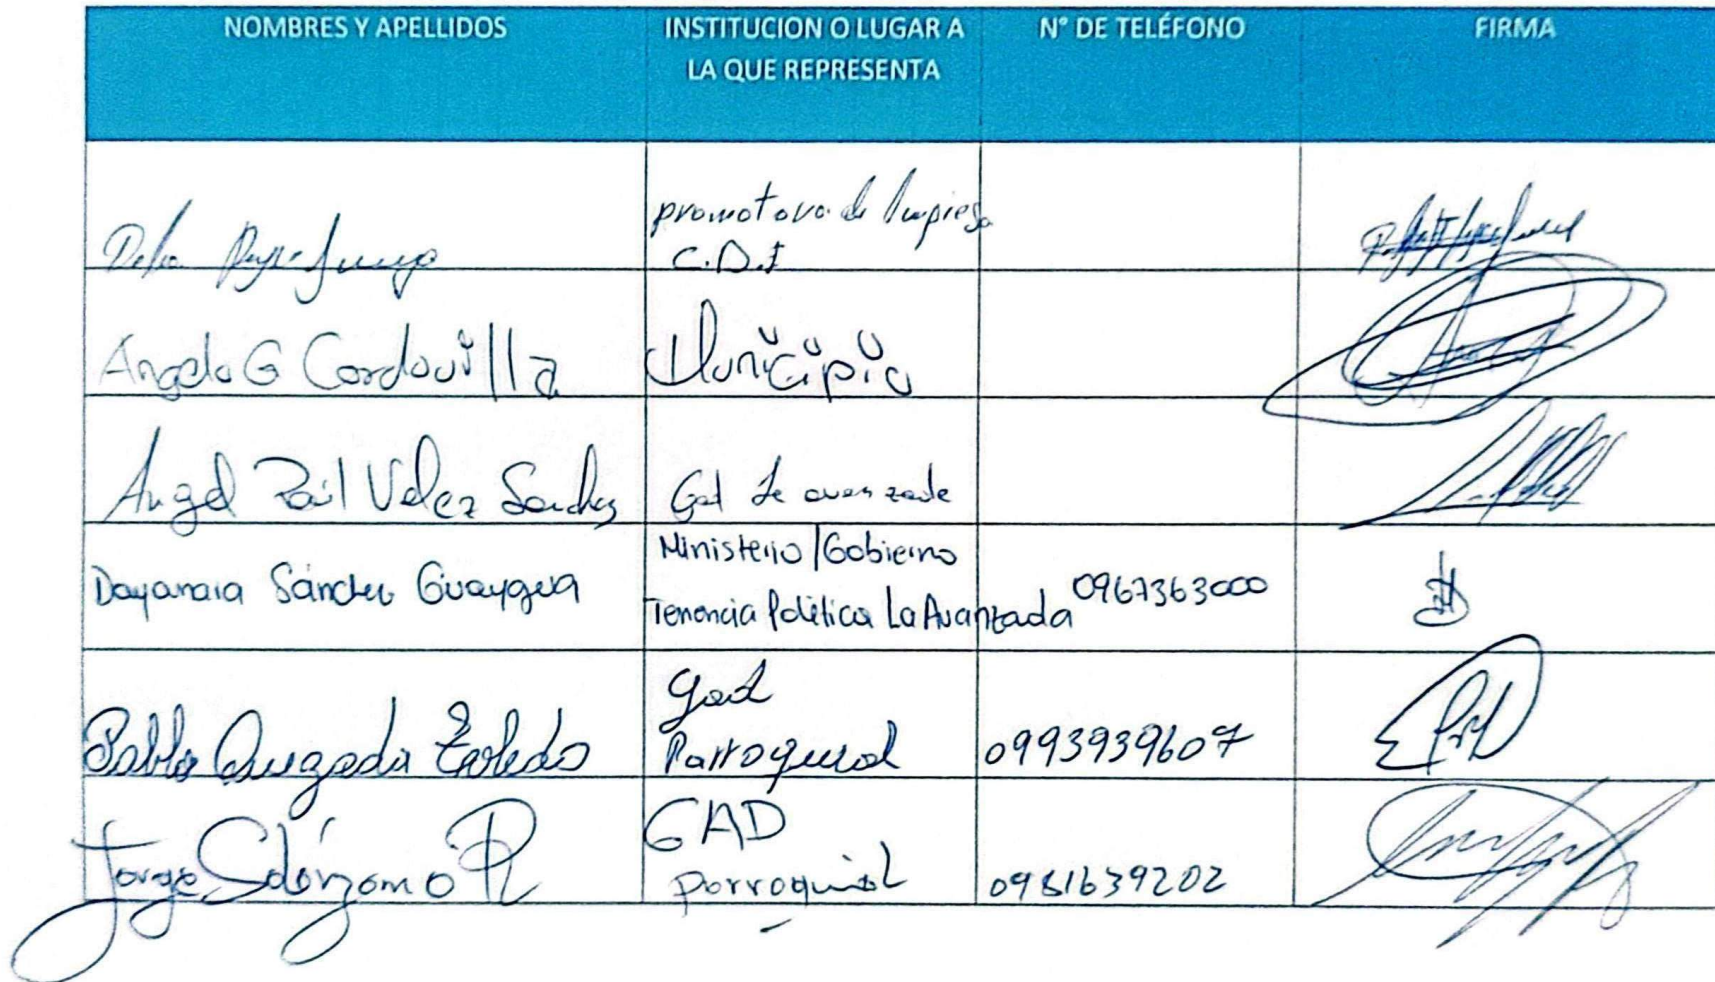 NOMBRES Y APELLIDOS
INSTITUCION O LUGAR A
LA QUE REPRESENTA
N° DE TELÉFONO
FIRMA
promotora de limpieza
C.D.I
Angelo G Cordovilla
Municipio
Angel Raúl Velez Sanchez
Gad de avanzada
Dayanara Sánchez Guaygua
Ministerio/Gobierno
Tenencia Política La Avanzada
0967363000
Pablo Quezada Toledo
gad
Parroquial
0993939607
Jorge Solórzano R
GAD
parroquial
0981639202